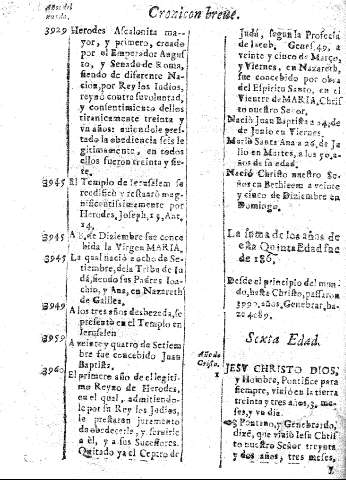 Años del
Mundo.
Cronicon breve.
3929 Herodes Ascalonita ma-
yor, y primero, creado
por el Emperador Augus-
to, y Senado de Roma,
siendo de diferente Na-
cion, por Rey los Judios,
reynó contra su voluntad,
y consentimiento dellos
tiranicamente treinta y
un años: siendole pres-
tada la obediencia seis le-
gitimamente, en todos
ellos fueron treinta y sie-
te.
3945 El Templo de Jerusalem se
reedificó y restauró mag-
nificentissimamente por
Herodes. Joseph. 15. Ant.
14.
3945 A 8. de Diziembre fue conce-
bida la Virgen MARIA.
3945 La qual nació a ocho de Se-
tiembre, de la Tribu de Iu-
dá, siendo sus Padres Ioa-
chin, y Ana, en Nazareth
de Galilea.
3949 A los tres años de su edad, se
presentó en el Templo en
Jerusalen
3959 A veinte y quatro de Setiem-
bre fue concebido Juan
Baptista.
3960 El primero año de el legiti-
mo Reyno de Herodes,
en el qual, admitiendo-
le por su Rey los Judios,
le prestaron juramento
de obedecerle, y servirle
a èl, y a sus Sucessores.
Quitado ya el Ceptro de
Judá, segun la Profecia
de Iacob, Genes. 49. a
veinte y cinco de Março,
y Viernes, en Nazareth,
fue concebido por obra
del Espiritu Santo, en el
Vientre de MARIA, Chris-
to nuestro Señor.
Nació Juan Baptista a 24. de
de Junio en Viernes.
Murió Santa Ana a 26. de Ju-
lio en Martes, a los 50. a-
ños de su edad.
Nació Christo nuestro Se-
ñor en Bethleem a veinte
y cinco de Diziembre en
Domingo.
La suma de los años de
esta Quinta Edad fue
de 586.
Desde el principio del mun-
do, hasta Christo, passaron
años, Genebrar, ha-
ze 4089.
Sexta Edad.
Año de
Cristo.
1 JESU CHRISTO DIOS,
y Hombre, Pontifice para
siempre, vivió en la tierra
treinta y tres años, 3. me-
ses, y un dia.
Pontano, y Genebrardo,
dizẽ, que vivió Iesu Chris-
to nuestro Señor treynta
y dos años, tres meses,